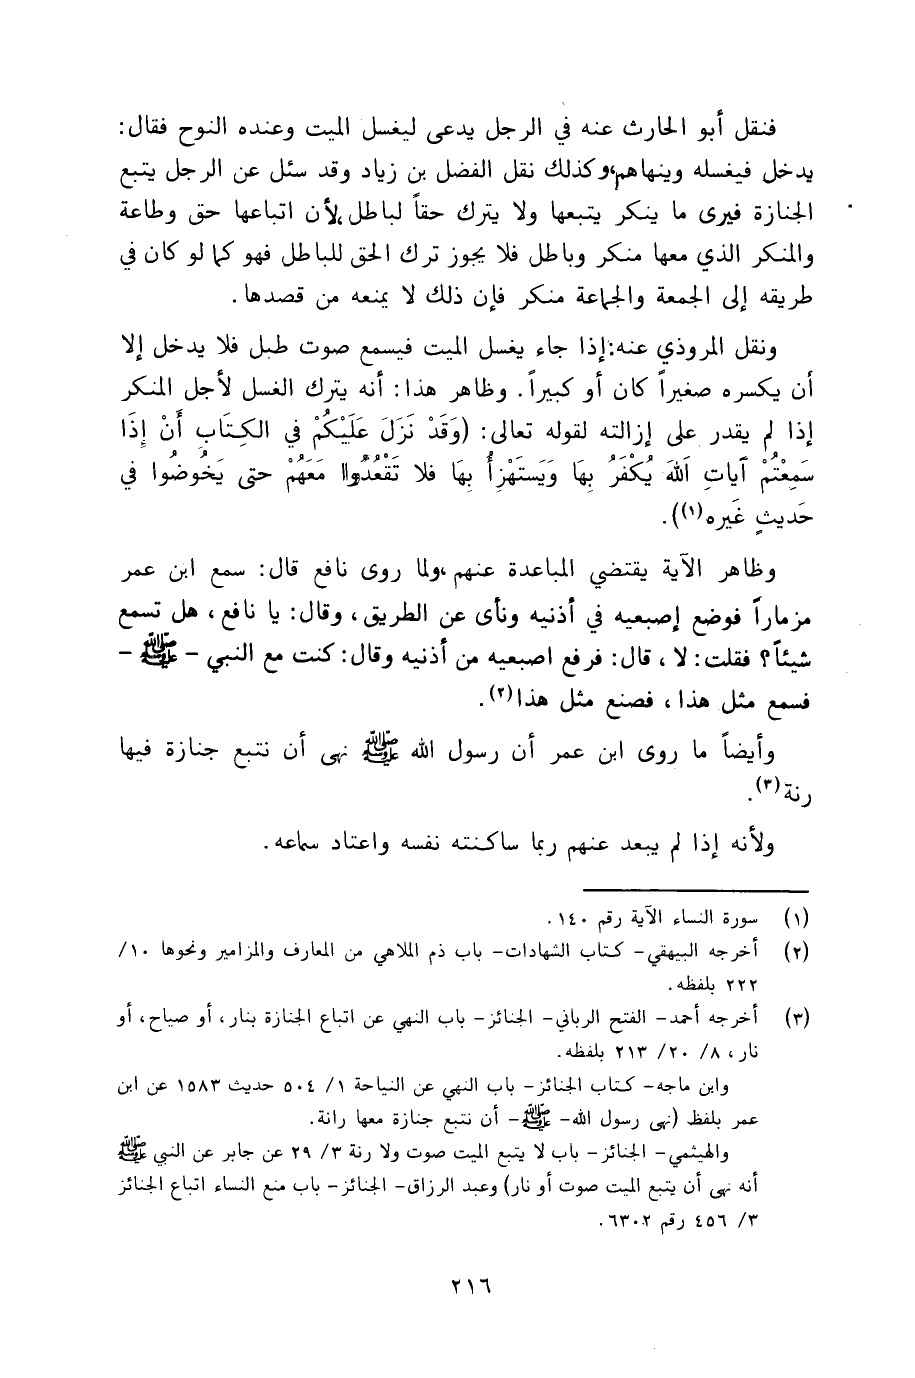 فنقل أبو الحارث عنه في الرجل يدعى ليغسل الميت وعنده النوح فقال:
يدخل فيغسله وينهاهم،وكذلك نقل الفضل بن زياد وقد سئل عن الرجل يتبع
الجنازة فيرى ما ينكر يتبعها ولا يترك حقاً لباطل،لأن اتباعها حق وطاعة
والمنكر الذي معها منكر وباطل فلا يجوز ترك الحق للباطل فهو كما لو كان في
طريقه إلى الجمعة والجماعة منكر فإن ذلك لا يمنعه من قصدها.
ونقل المروذي عنه:إذا جاء يغسل الميت فيسمع صوت طبل فلا يدخل إلا
أن يكسره صغيراً كان أو كبيراً. وظاهر هذا: أنه يترك الغسل لأجل المنكر
إذا لم يقدر على إزالته لقوله تعالى: (وَقَدْ نَزَلَ عَلَيْكُمْ في الكِتَابِ أَنْ إِذَا
سَمِعْتُمْ آيَاتِ اللهَ يُكْفَرُ بِهَا وَيَستَهْزِأُ بِهَا فلا تَقْعُدُوا مَعَهُمْ حتى يَخُوضُوا في
حَديثٍ غَيره(١)).
وظاهر الآية يقتضي المباعدة عنهم،ولما روى نافع قال: سمع ابن عمر
مزماراً فوضع إصبعيه في أذنيه ونأى عن الطريق، وقال: يا نافع، هل تسمع
شيئاً؟ فقلت: لا، قال: فرفع اصبعيه من أذنيه وقال: كنت مع النبي - ﷺ -
فسمع مثل هذا، فصنع مثل هذا(٢).
وأيضاً ما روى ابن عمر أن رسول الله ﷺ نهى أن نتبع جنازة فيها
رنة(٣).
ولأنه إذا لم يبعد عنهم ربما ساكنته نفسه واعتاد سماعه.
(١) سورة النساء الآية رقم ١٤٠.
(٢) أخرجه البيهقي- كتاب الشهادات- باب ذم الملاهي من المعارف والمزامير ونحوها ١٠/
٢٢٢ بلفظه.
(٣) أخرجه أحمد- الفتح الرباني- الجنائز- باب النهي عن اتباع الجنازة بنار، أو صياح، أو
نار، ٨/ ٢٠/ ٢١٣ بلفظه.
وابن ماجه- كتاب الجنائز- باب النهي عن النياحة ١/ ٥٠٤ حديث ١٥٨٣ عن ابن
عمر بلفظ (نهى رسول الله- ﷺ- أن نتبع جنازة معها رانة.
والهيثمي- الجنائز- باب لا يتبع الميت صوت ولا رنة ٣/ ٢٩ عن جابر عن النبي ﷺ
أنه نهى أن يتبع الميت صوت أو نار) وعبد الرزاق- الجنائز- باب منع النساء اتباع الجنائز
٣/ ٤٥٦ رقم ٦٣٠٢.
٢١٦